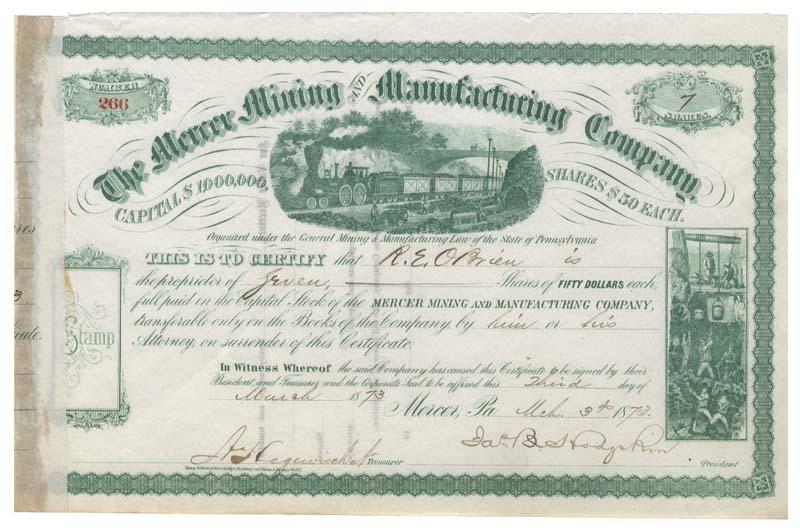 NUMBER
266
7
SHARES.
The Mercer Mining AND Manufacturing Company.
CAPITAL $1,000,000,
SHARES $50 EACH.
Organized under the General Mining & Manufacturing Law of the State of Pennsylvania
THIS IS TO CERTIFY that R. E. O'Brien is
the proprietor of Seven, Shares of FIFTY DOLLARS each,
full paid in the Capital Stock of the MERCER MINING AND MANUFACTURING COMPANY,
transferable only on the Books of the Company by him or his
Attorney, on surrender of this Certificate.
Stamp
In Witness Whereof the said Company has caused this Certificate to be signed by their
President and Treasurer and the Corporate Seal to be affixed this Third day of
March 1873
Mercer, Pa. Mch. 3rd 1873.
Treasurer
Jas. B. Hodgskin
President